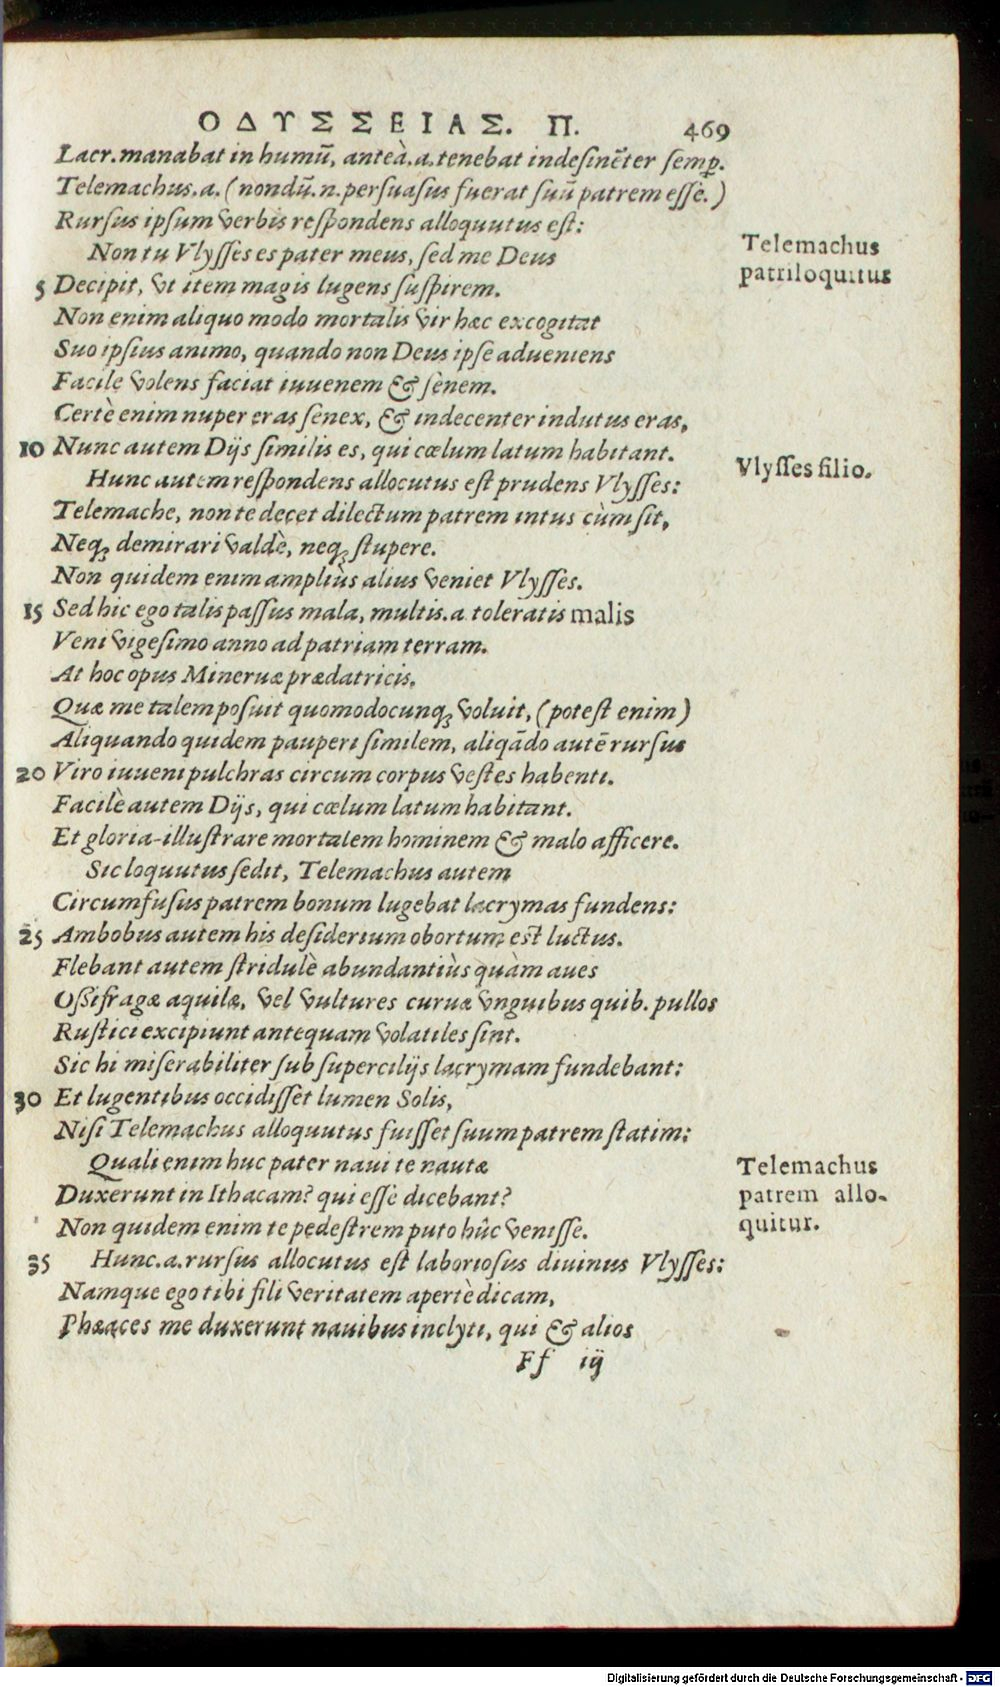 ΟΔΥΣΣΕΙΑΣ. Π. 469
Lacr. manabat in humū, anteà .a. tenebat indesinēter semp.
Telemachus .a. (nondū .n. persuasus fuerat suū patrem esse.)
Rursus ipsum verbis respondens alloquutus est:
Non tu Vlysses es pater meus, sed me Deus
Telemachus
patri loquitus
5 Decipit, vt item magis lugens suspirem.
Non enim aliquo modo mortalis vir hæc excogitat
Suo ipsius animo, quando non Deus ipse adueniens
Facile volens faciat iuuenem & senem.
Certè enim nuper eras senex, & indecenter indutus eras,
10 Nunc autem Dijs similis es, qui cœlum latum habitant.
Hunc autem respondens allocutus est prudens Vlysses:
Vlysses filio.
Telemache, non te decet dilectum patrem intus cùm sit,
Neq; demirari valdè, neq; stupere.
Non quidem enim ampliùs alius veniet Vlysses.
15 Sed hic ego talis passus mala, multis .a. toleratis malis
Veni vigesimo anno ad patriam terram.
At hoc opus Mineruæ prædatricis.
Quæ me talem posuit quomodocunq; voluit, (potest enim)
Aliquando quidem pauperi similem, aliqādo autē rursus
20 Viro iuueni pulchras circum corpus vestes habenti.
Facilè autem Dijs, qui cœlum latum habitant.
Et gloria-illustrare mortalem hominem & malo afficere.
Sic loquutus sedit, Telemachus autem
Circumfusus patrem bonum lugebat lacrymas fundens:
25 Ambobus autem his desiderium obortum est luctus.
Flebant autem stridulè abundantiùs quàm aues
Ossifragæ aquilæ, vel vultures curuæ vnguibus quib. pullos
Rustici excipiunt antequam volatiles sint.
Sic hi miserabiliter sub supercilijs lacrymam fundebant:
30 Et lugentibus occidisset lumen Solis,
Nisi Telemachus alloquutus fuisset suum patrem statim:
Quali enim huc pater naui te nautæ
Telemachus
patrem allo-
quitur.
Duxerunt in Ithacam? qui esse dicebant?
Non quidem enim te pedestrem puto hûc venisse.
35 Hunc .a. rursus allocutus est laboriosus diuinus Vlysses:
Namque ego tibi fili veritatem apertè dicam,
Phæaces me duxerunt nauibus inclyti, qui & alios
Ff iij
Digitalisierung gefördert durch die Deutsche Forschungsgemeinschaft - DFG